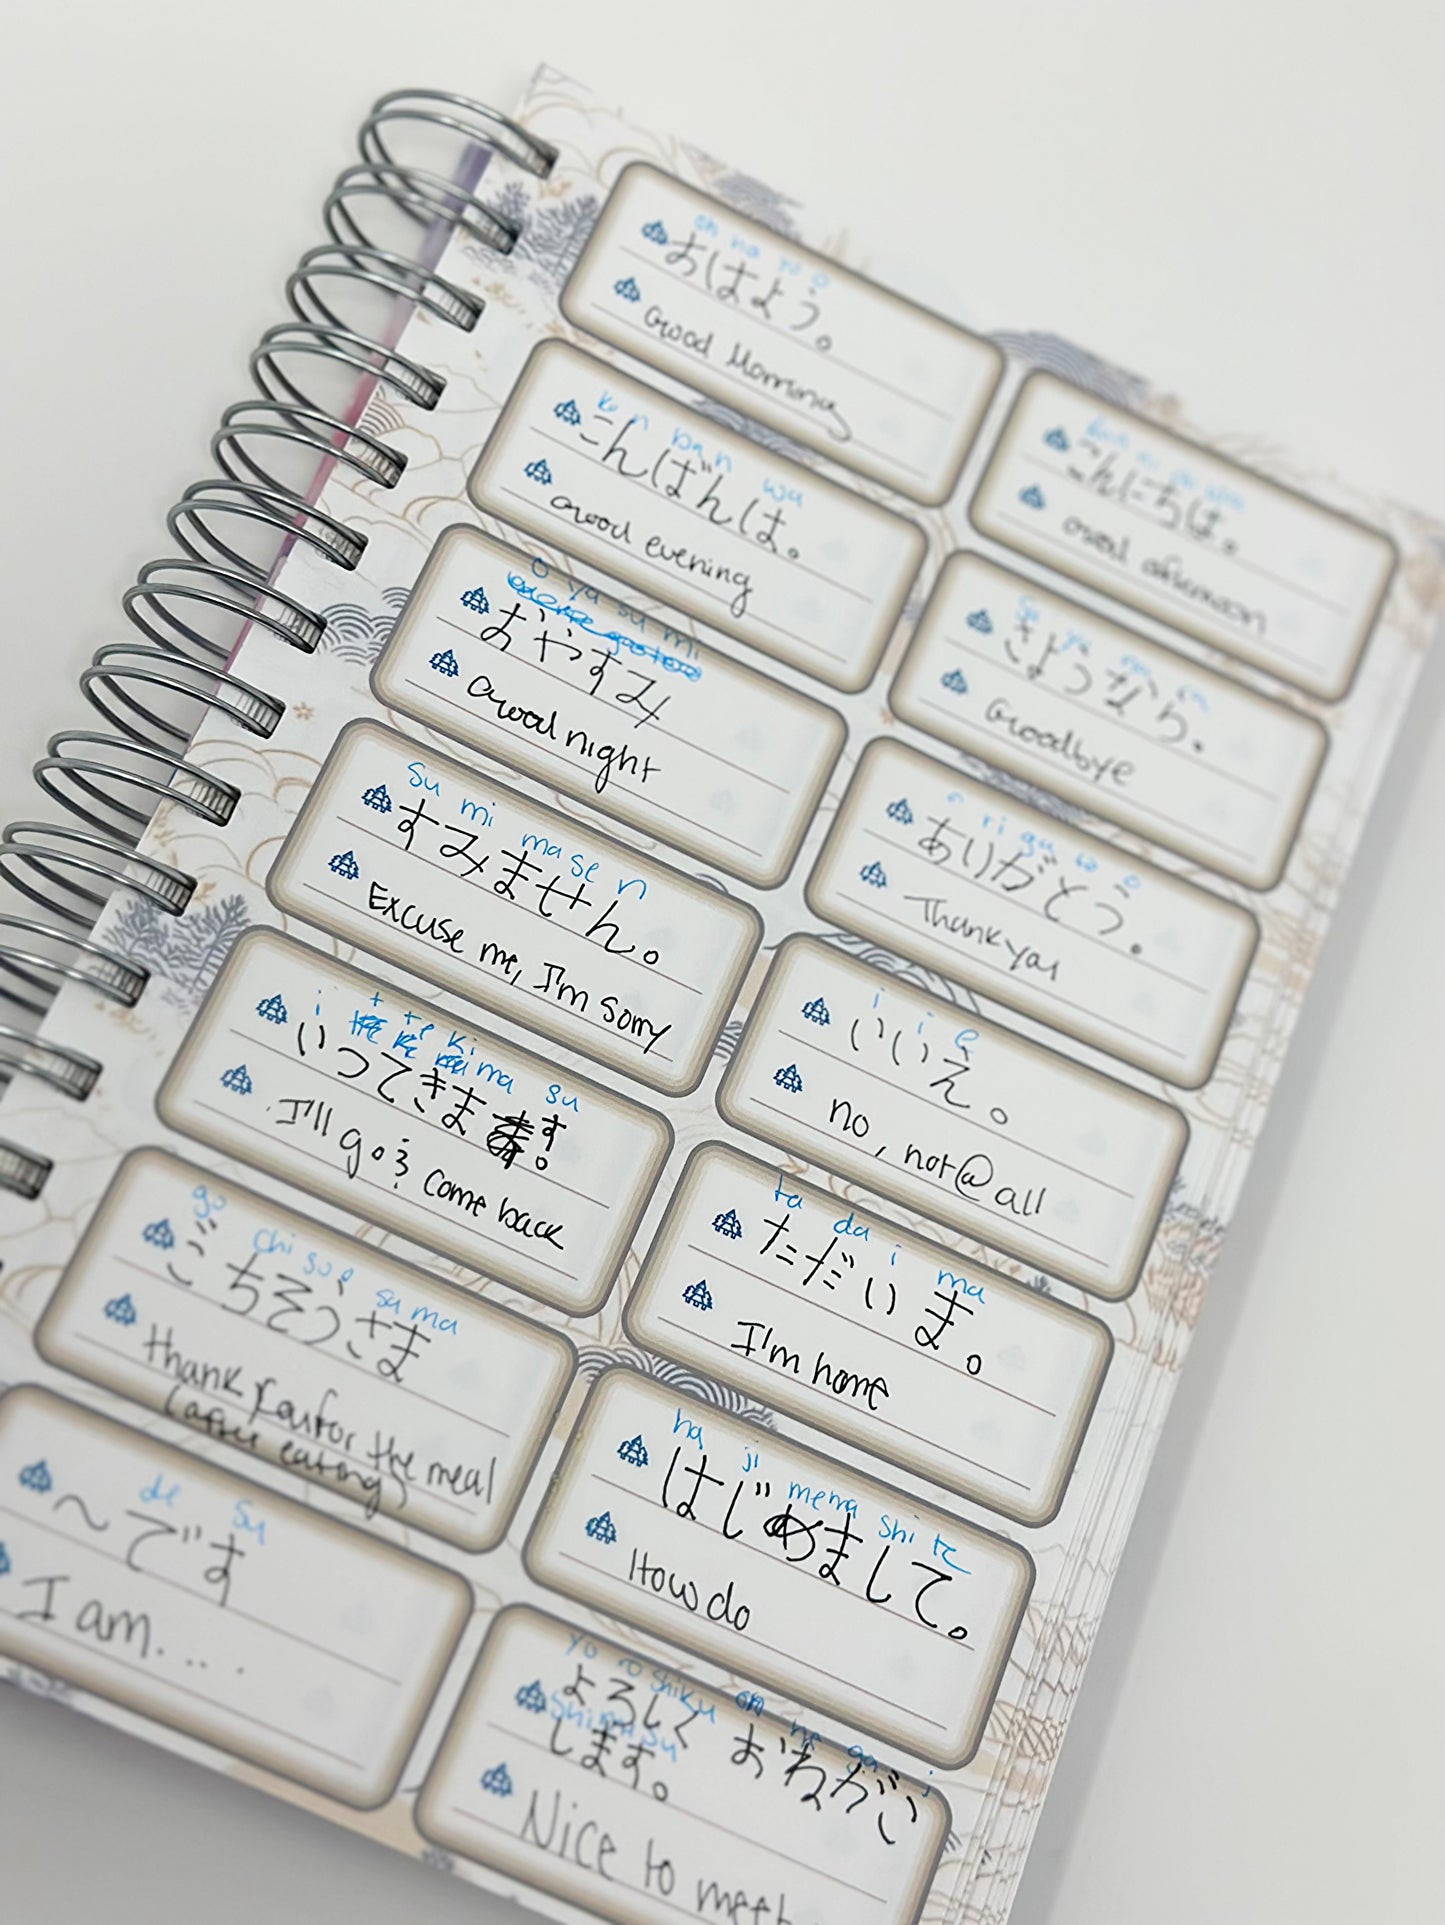 ha yo o
おはよう。
Good Morning
ko n ba n wa
こんばんは。
Good evening
o ya su mi
おやすみ
Good night
su mi ma se n
すみません。
Excuse me, I'm sorry
i t te ki ma su
いってきます。
I'll go & come back
go chi so o sa ma
ごちそうさま
thank you for the meal
(after eating)
de su
〜です
I am....
こんにちは。
Good afternoon
さようなら。
Goodbye
a ri ga to o
ありがとう。
Thank you
i i e
いいえ。
no, not @ all
ta da i ma
ただいま。
I'm home
ha ji me ma shi te
はじめまして。
How do
yo ro shi ku o ne ga i
よろしく おねがい
shi ma su
します。
Nice to meet